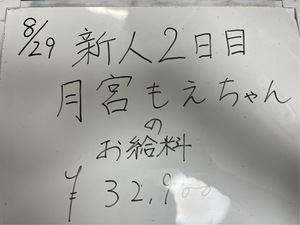 8/29 新人2日目
月宮もえちゃん
の
お給料
¥32,900